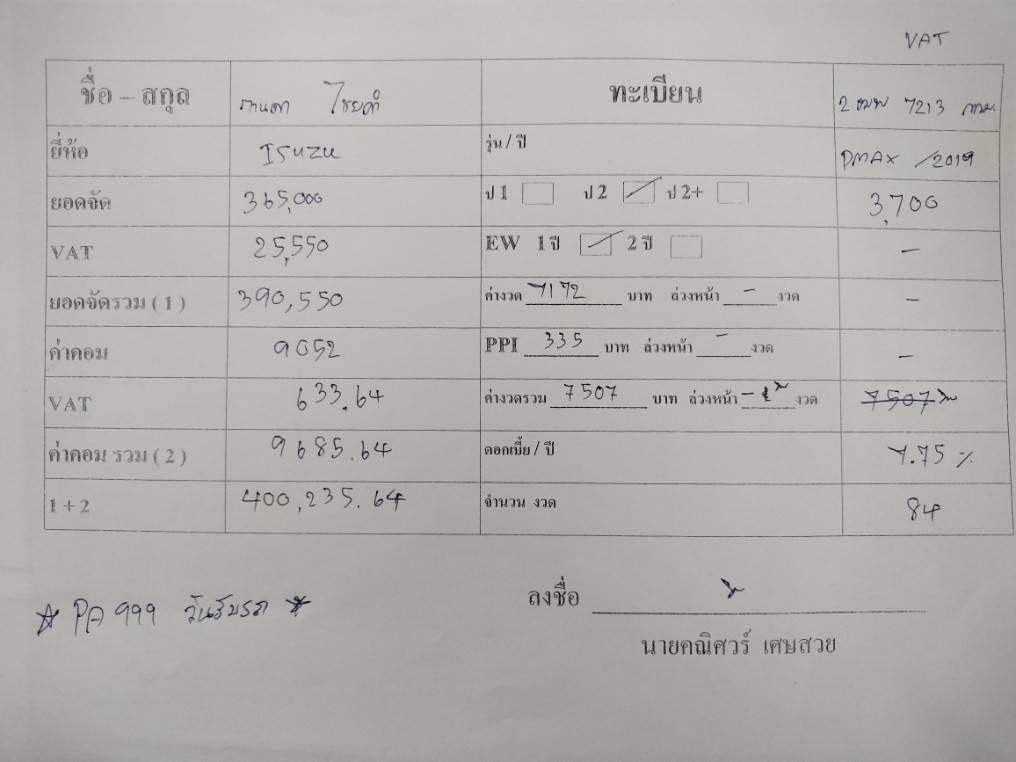 VAT
ชื่อ – สกุล ไชยคำ ทะเบียน 7213 กทม.
ยี่ห้อ ISUZU รุ่น / ปี DMAX / 2019
ยอดจัด 365,000 ป 1 ป 2 ป 2+ 3,700
VAT 25,550 EW 1 ปี 2 ปี –
ยอดจัดรวม ( 1 ) 390,550 ค่างวด 7172 บาท ล่วงหน้า – งวด –
ค่าคอม 9052 PPI 335 บาท ล่วงหน้า – งวด –
VAT 633.64 ค่างวดรวม 7507 บาท ล่วงหน้า – งวด 7507
ค่าคอม รวม ( 2 ) 9685.64 ดอกเบี้ย / ปี 7.75 %
1 + 2 400,235.64 จำนวน งวด 84
PA 999 วันรับรถ
ลงชื่อ
นายคณิศวร์ เศษสวย